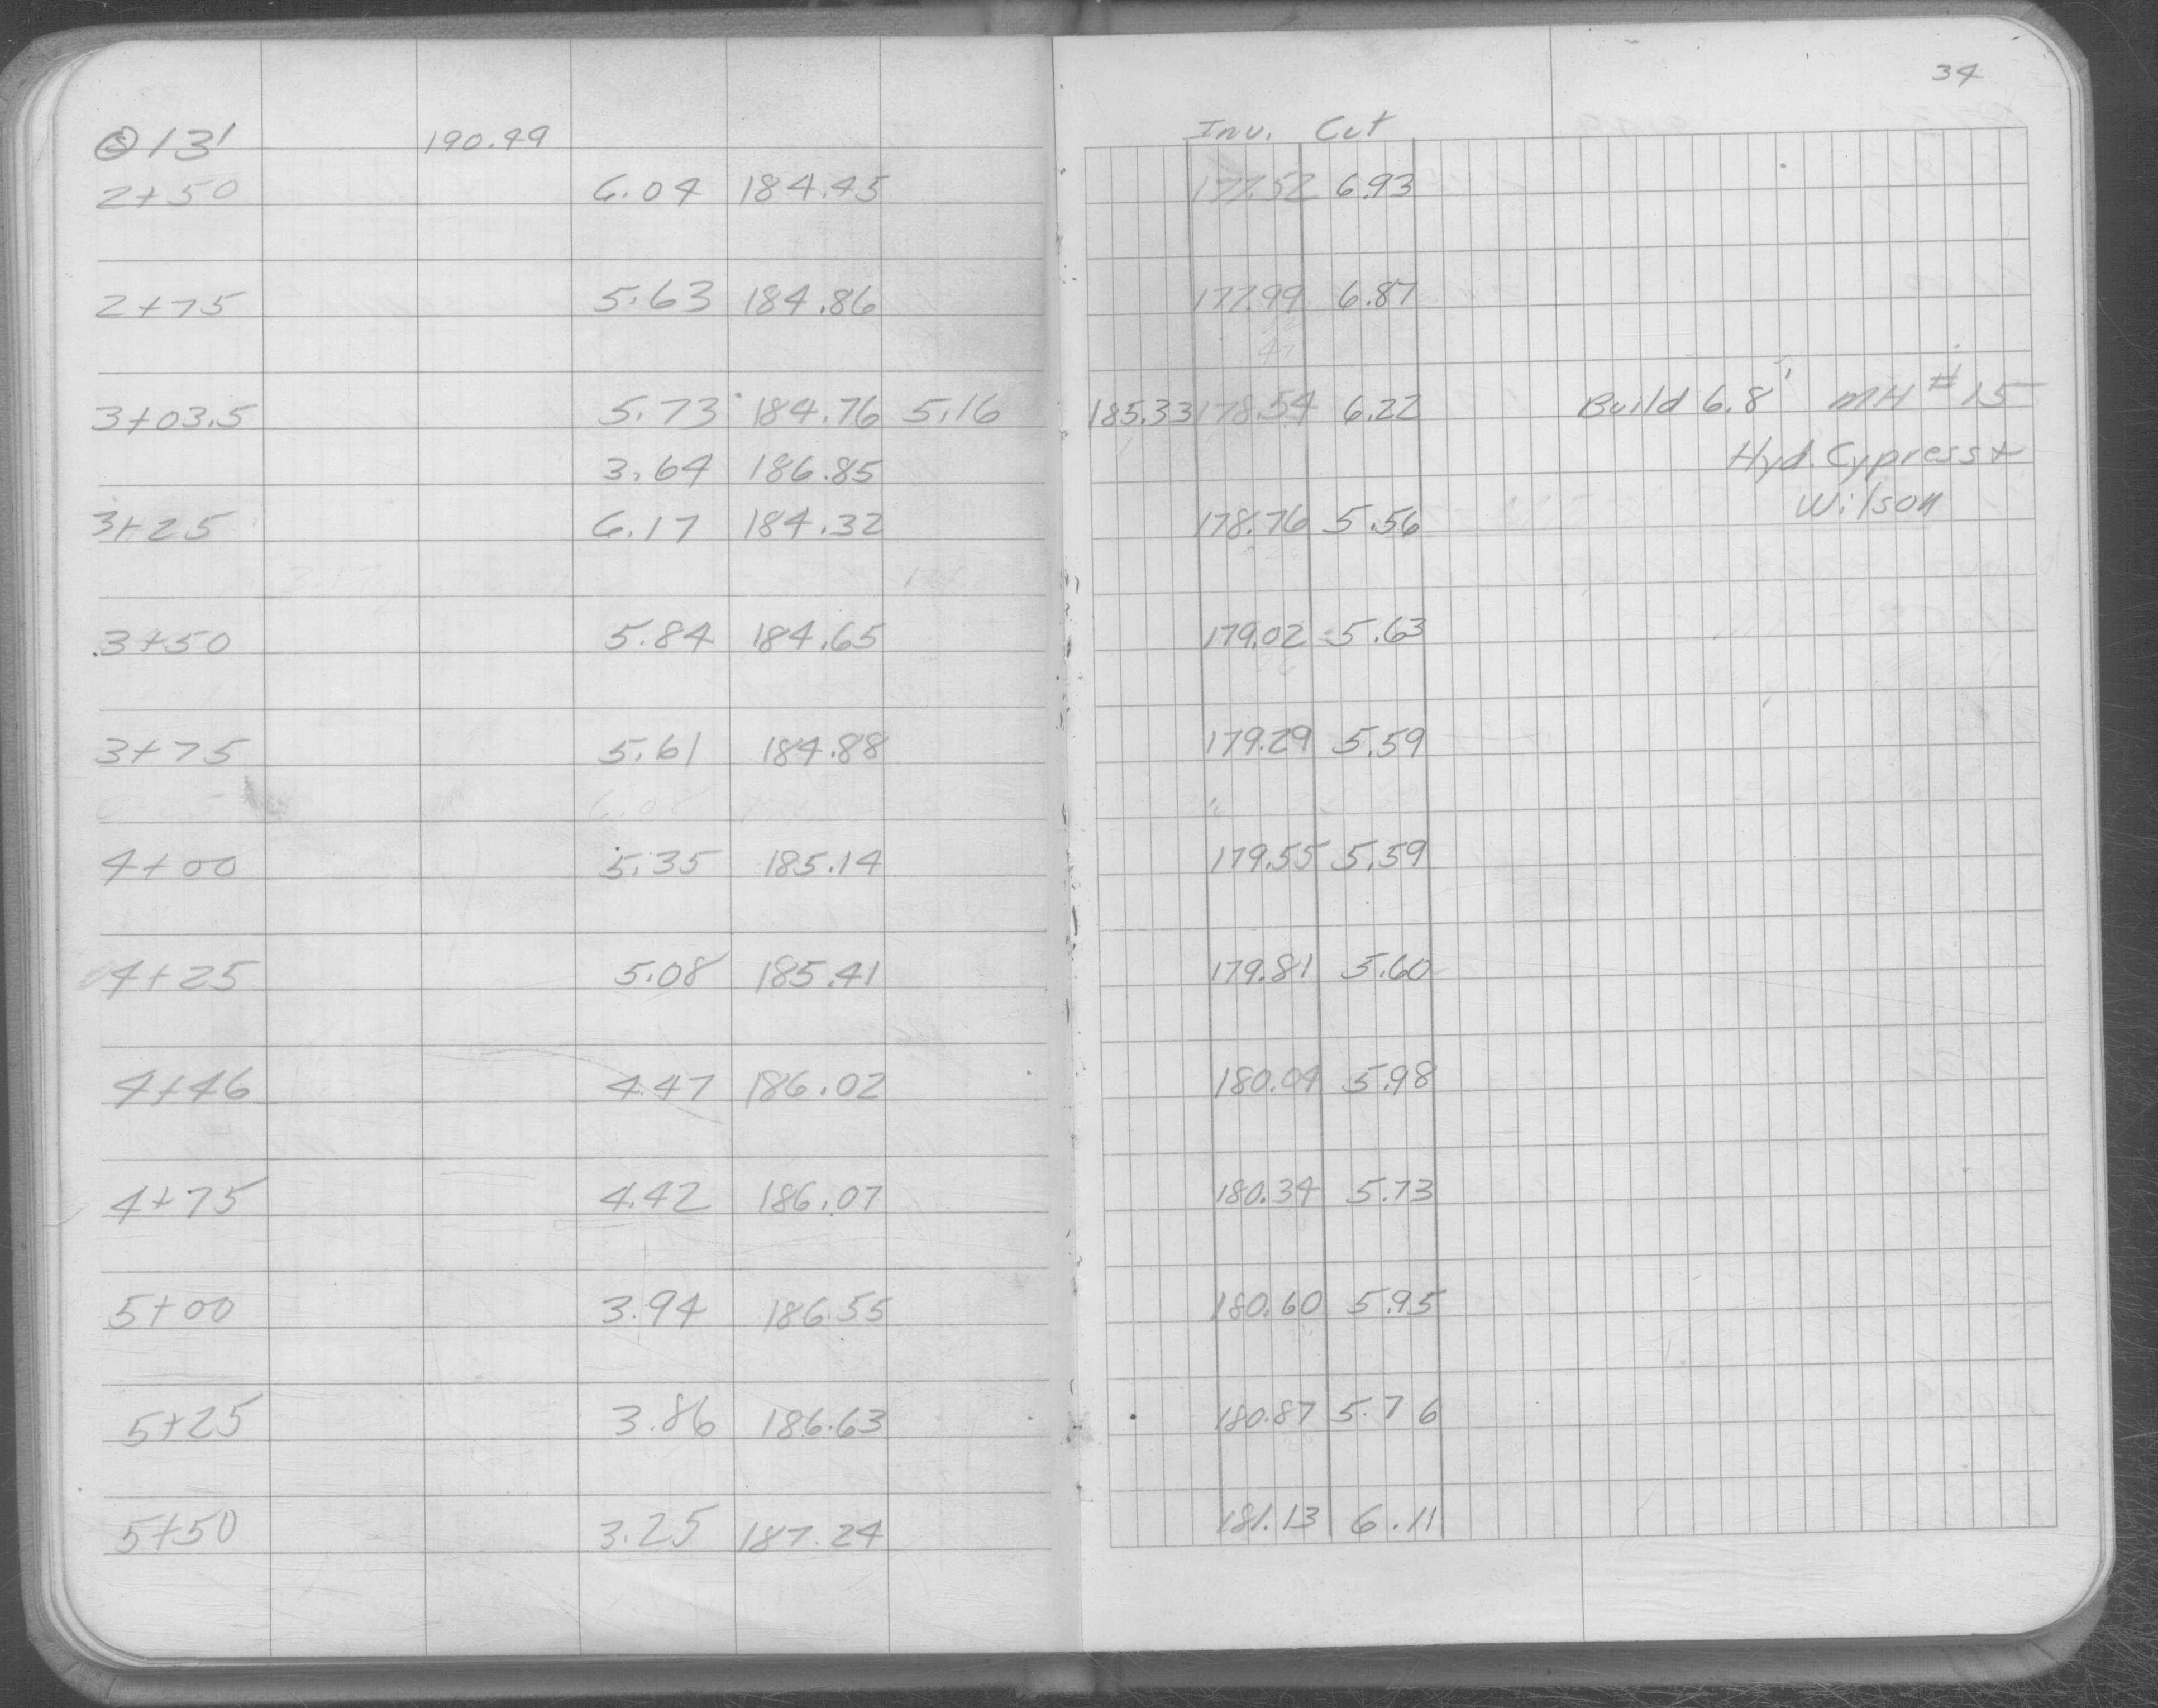 34
Inv. Cut
@ 13' 190.49
2+50 6.04 184.45 177.52 6.93
2+75 5.63 184.86 177.99 6.87
47
3+03.5 5.73 184.76 5.16 185.33 178.54 6.22 Build 6.8' MH #15
3.64 186.85 Hyd. Cypress +
Wilson
3+25 6.17 184.32 178.76 5.56
3+50 5.84 184.65 179.02 5.63
26
3+75 5.61 184.88 179.29 5.59
4+00 5.35 185.14 179.55 5.59
4+25 5.08 185.41 179.81 5.60
4+46 4.47 186.02 180.04 5.98
4+75 4.42 186.07 180.34 5.73
5+00 3.94 186.55 180.60 5.95
5+25 3.86 186.63 180.87 5.76
5+50 3.25 187.24 181.13 6.11